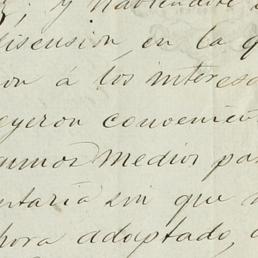 y habiendose
discusion, en la q
on á los interesa
eyeron convenien
gunos medios pa
entaria sin que
hora adoptado,